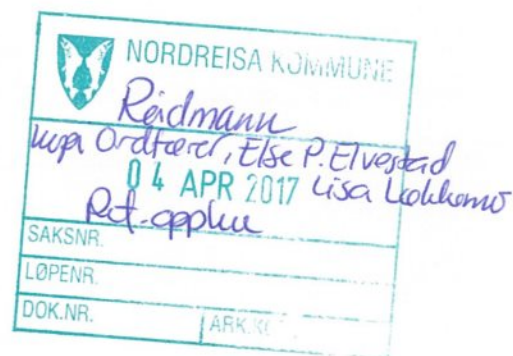 NORDREISA KOMMUNE
Reidmann
kopi Ordfører, Else P. Elvestad
04 APR 2017 Lisa Lokkemo
SAKSNR.
LØPENR.
DOK.NR.